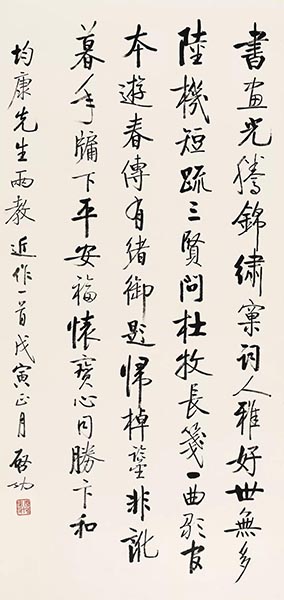 書畫光騰錦繡窠詞人雅好世無多
陸機短疏三賢問杜牧長箋一曲歌官
本遊春傳有緒御題歸棹鑒非訛
暮年牖下平安福懷寶心同勝卞和
均康先生兩教 近作一首戊寅正月 啟功